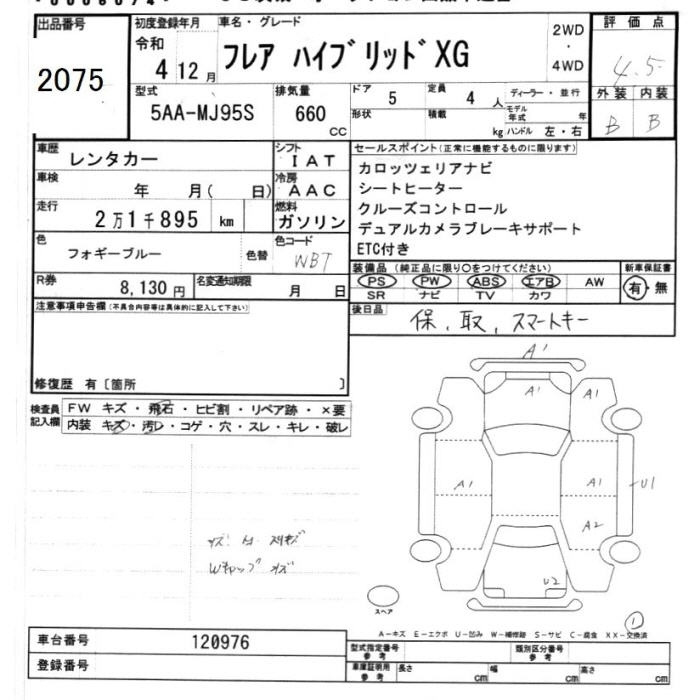 出品番号 初度登録年月 車名・グレード 2WD ・ 4WD 評価点
2075
令和 4 12月 フレア ハイブリッド XG 4.5
型式 排気量 ドア 5 定員 4人 ディーラー・並行 外装 内装
5AA-MJ95S 660 cc 形状 積載 kg モデル年式 年 ハンドル 左・右 B B
車歴 レンタカー シフト IAT セールスポイント(正常に機能するものに限ります)
車検 年 月( 日) 冷房 AAC カロッツェリアナビ
シートヒーター
走行 2万1千895 km 燃料 ガソリン クルーズコントロール
デュアルカメラブレーキサポート
色 フォギーブルー 色替 色コード WBT ETC付き
R券 8,130円 名変通知期限 月 日 装備品(純正品に限り○をつけてください) 新車保証書
PS PW ABS エアB AW 有・無
SR ナビ TV カワ
注意事項申告欄(不具合内容等は具体的に記入して下さい) 後日品 保、取、スマートキー
修復歴 有〔箇所 〕
検査員記入欄 FW キズ・飛石・ヒビ割・リペア跡・×要
内装 キズ・汚レ・コゲ・穴・スレ・キレ・破レ
A1
A1 A1
A1 A1 U1
A2
Wキャップ キズ
U2
スペア
1
A-キズ E-エクボ U-凹み W-補修跡 S-サビ C-腐食 XX-交換済
車台番号 120976 型式指定番号 参考 類別区分番号 参考
登録番号 車庫証明用 参考 長さ cm 幅 cm 高さ cm